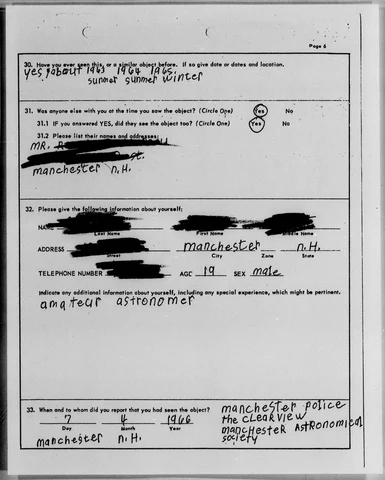 Page 6
30. Have you ever seen this, or a similar object before. If so give date or dates and location.
yes, about 1963 1964 1965
summer summer winter
31. Was anyone else with you at the time you saw the object? (Circle One) Yes No
31.1 IF you answered YES, did they see the object too? (Circle One) Yes No
31.2 Please list their names and addresses:
MR.
manchester N.H.
32. Please give the following information about yourself:
Last Name First Name Middle Name
ADDRESS manchester n.H.
Street City Zone State
TELEPHONE NUMBER AGE 19 SEX male
Indicate any additional information about yourself, including any special experience, which might be pertinent.
amateur astronomer
33. When and to whom did you report that you had seen the object?
7 4 1966
Day Month Year
manchester n.H.
manchester police
the cLearview
mancHesteR AStRonomical
society